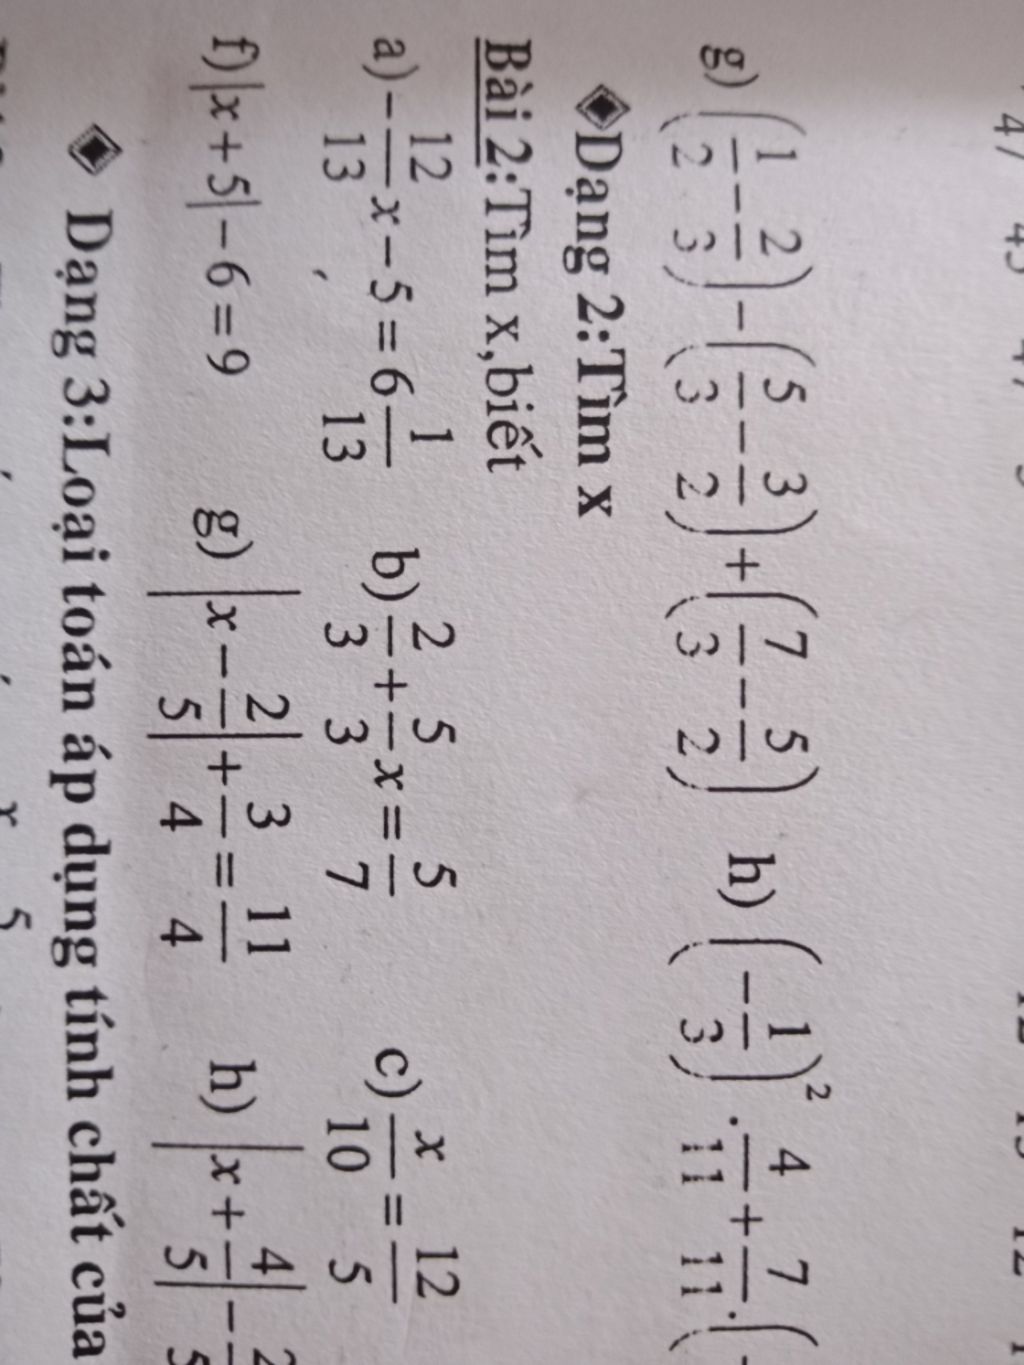 g) (1/2 - 2/3) - (5/3 - 3/2) + (7/3 - 5/2) h) (-1/3)² . 4/11 + 7/11 . (-
◈Dạng 2:Tìm x
Bài 2:Tìm x,biết
a) -12/13 x - 5 = 6 1/13 b) 2/3 + 5/3 x = 5/7 c) x/10 = 12/5
f) |x + 5| - 6 = 9 g) |x - 2/5| + 3/4 = 11/4 h) |x + 4/5| -
◈ Dạng 3:Loại toán áp dụng tính chất của